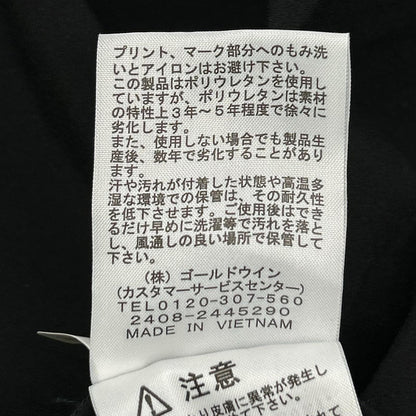 プリント、マーク部分へのもみ洗
いとアイロンはお避け下さい。
この製品はポリウレタンを使用し
ていますが、ポリウレタンは素材
の特性上3年～5年程度で徐々に
劣化します。
また、使用しない場合でも製品生
産後、数年で劣化することがあり
ます。
汗や汚れが付着した状態や高温多
湿な環境での保管は、その耐久性
を低下させます。ご使用後はでき
るだけ早めに洗濯等で汚れを落と
し、風通しの良い場所で保管して
下さい。
(株) ゴールドウイン
(カスタマーサービスセンター)
TEL0120-307-560
2408-2445290
MADE IN VIETNAM
注意
より皮膚に異常が発生し